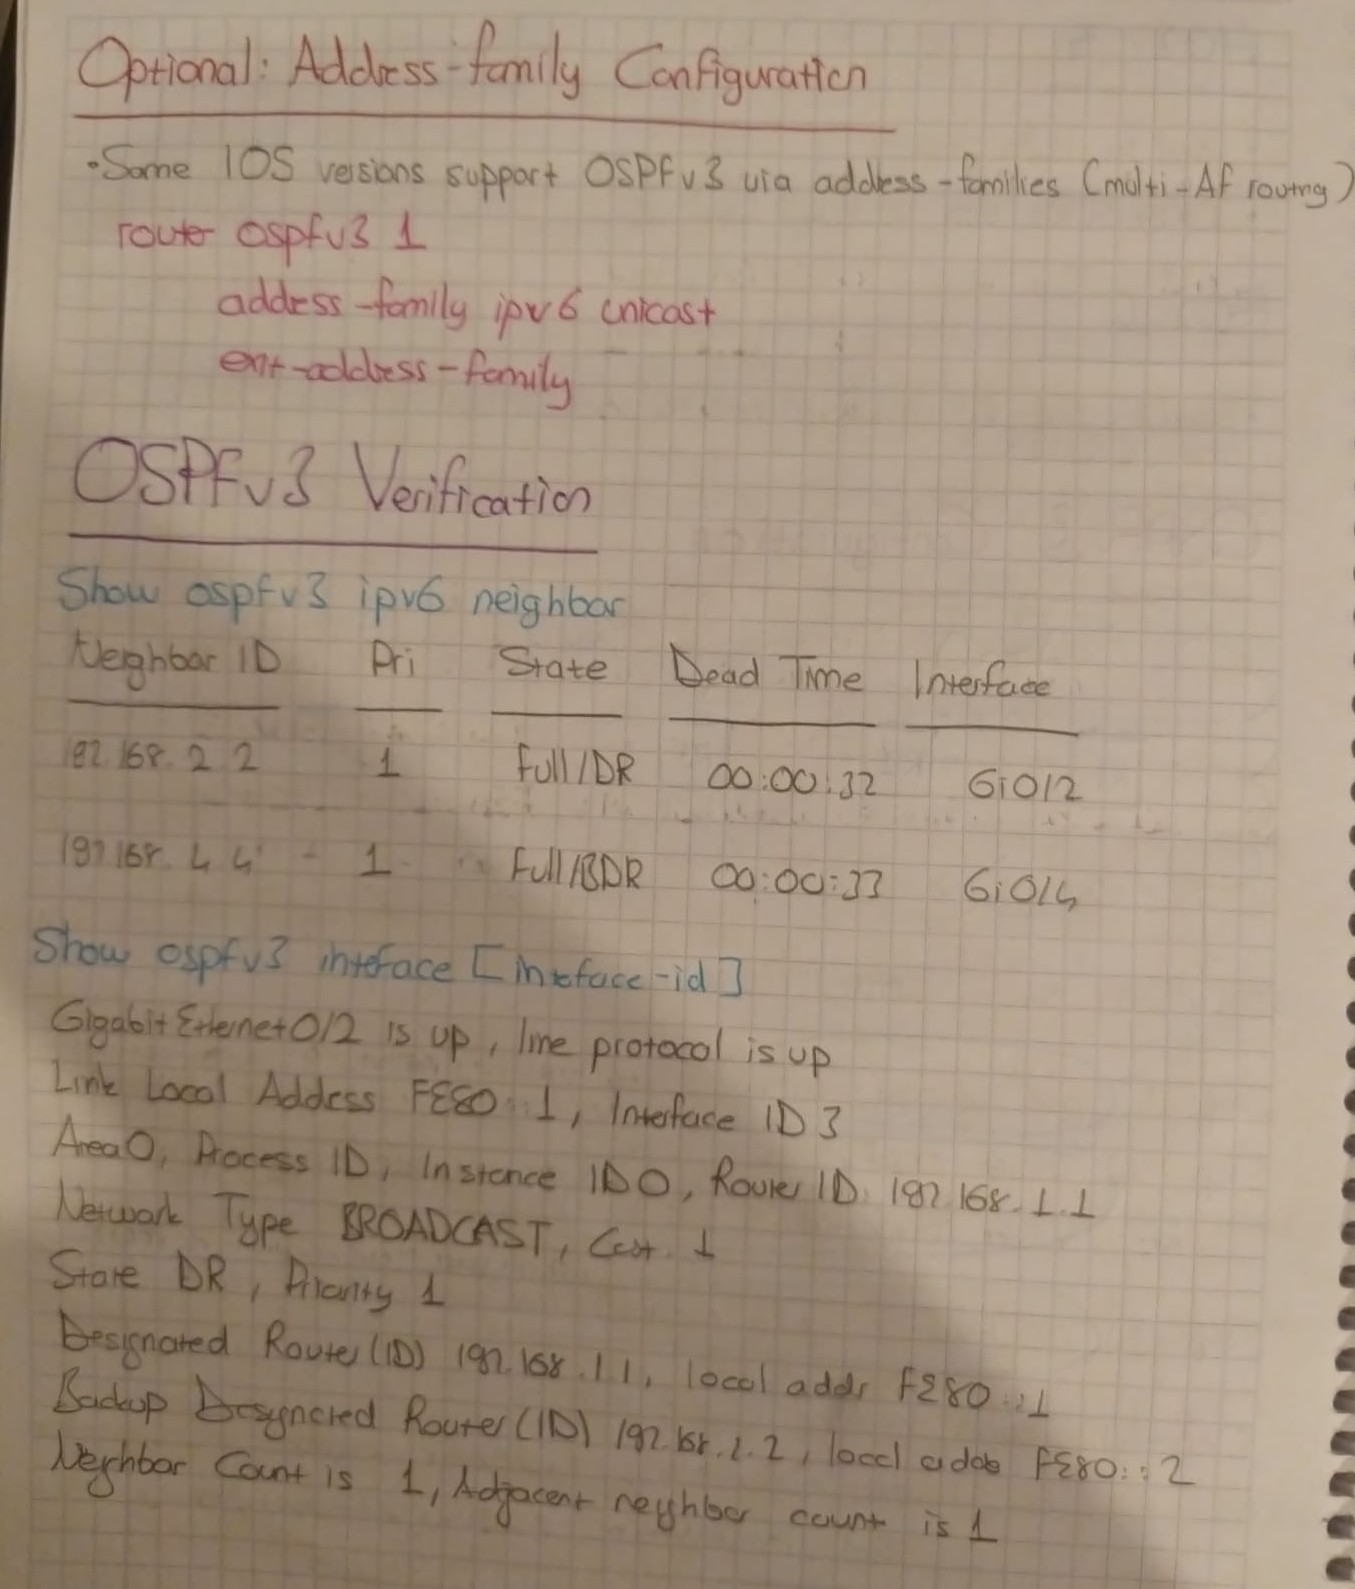 Optional: Address-family Configuration
•Some IOS versions support OSPFv3 via address-families (multi-AF routing)
router ospfv3 1
address-family ipv6 unicast
exit-address-family
OSPFv3 Verification
Show ospfv3 ipv6 neighbor
Neighbor ID Pri State Dead Time Interface
192.168.2.2 1 Full/DR 00:00:32 Gi0/2
192.168.4.4 1 Full/BDR 00:00:33 Gi0/4
Show ospfv3 interface [interface-id]
GigabitEthernet0/2 is up, line protocol is up
Link Local Address FE80::1, Interface ID 3
Area 0, Process ID, Instance ID 0, Router ID 192.168.1.1
Network Type BROADCAST, Cost 1
State DR, Priority 1
Designated Router (ID) 192.168.1.1, local addr FE80::1
Backup Designated Router (ID) 192.168.2.2, local addr FE80::2
Neighbor Count is 1, Adjacent neighbor count is 1